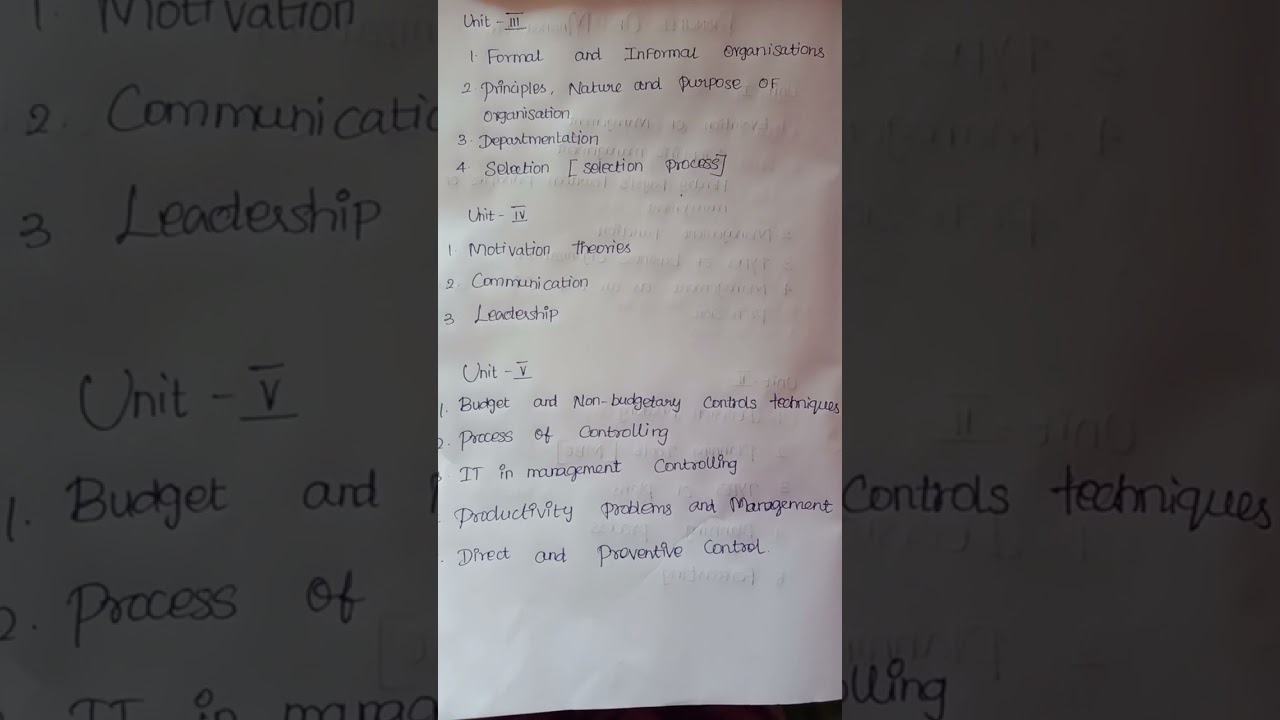 Unit - III
1. Formal and Informal Organisations
2 Principles, Nature and purpose OF
organisation
3. Departmentation
4. Selection [selection process]
Unit - IV
1. Motivation theories
2. Communication
3 Leadership
Unit - V
1. Budget and Non-budgetary Controls techniques
2. Process of Controlling
3. IT in management Controlling
. Productivity problems and Management
. Direct and Proventive Control.